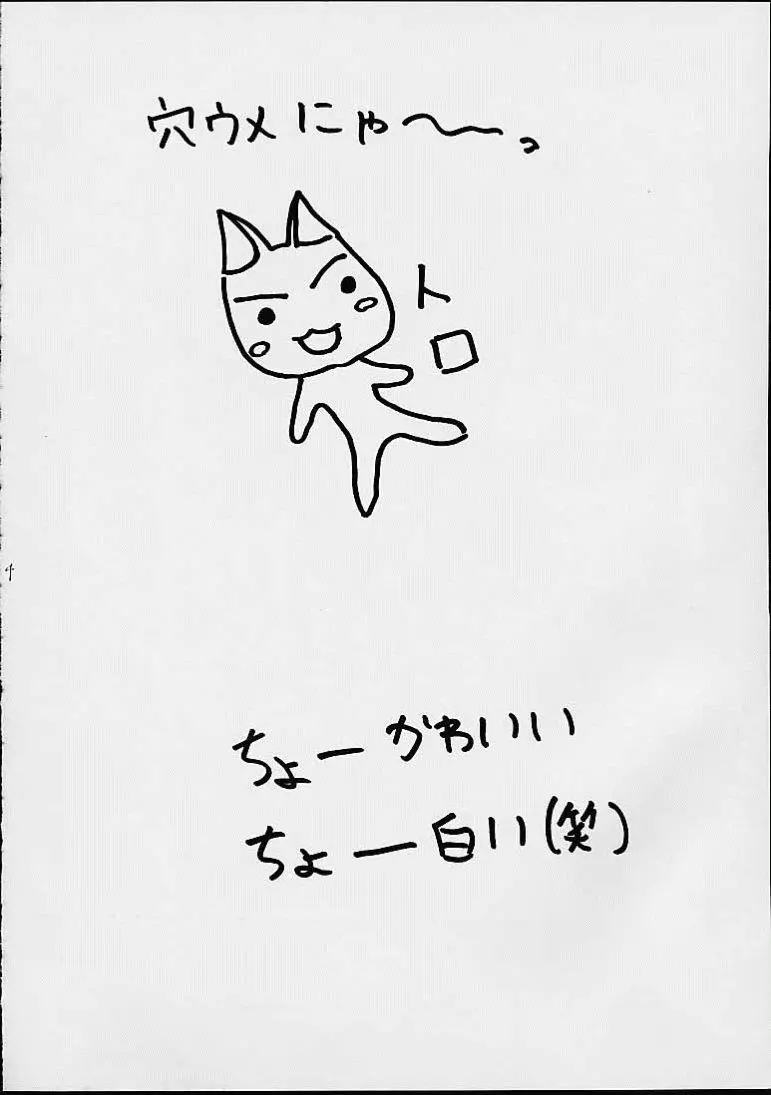 穴ウメにゃ〜〜っ
トロ
ちょーかわいい
ちょー白い(笑)